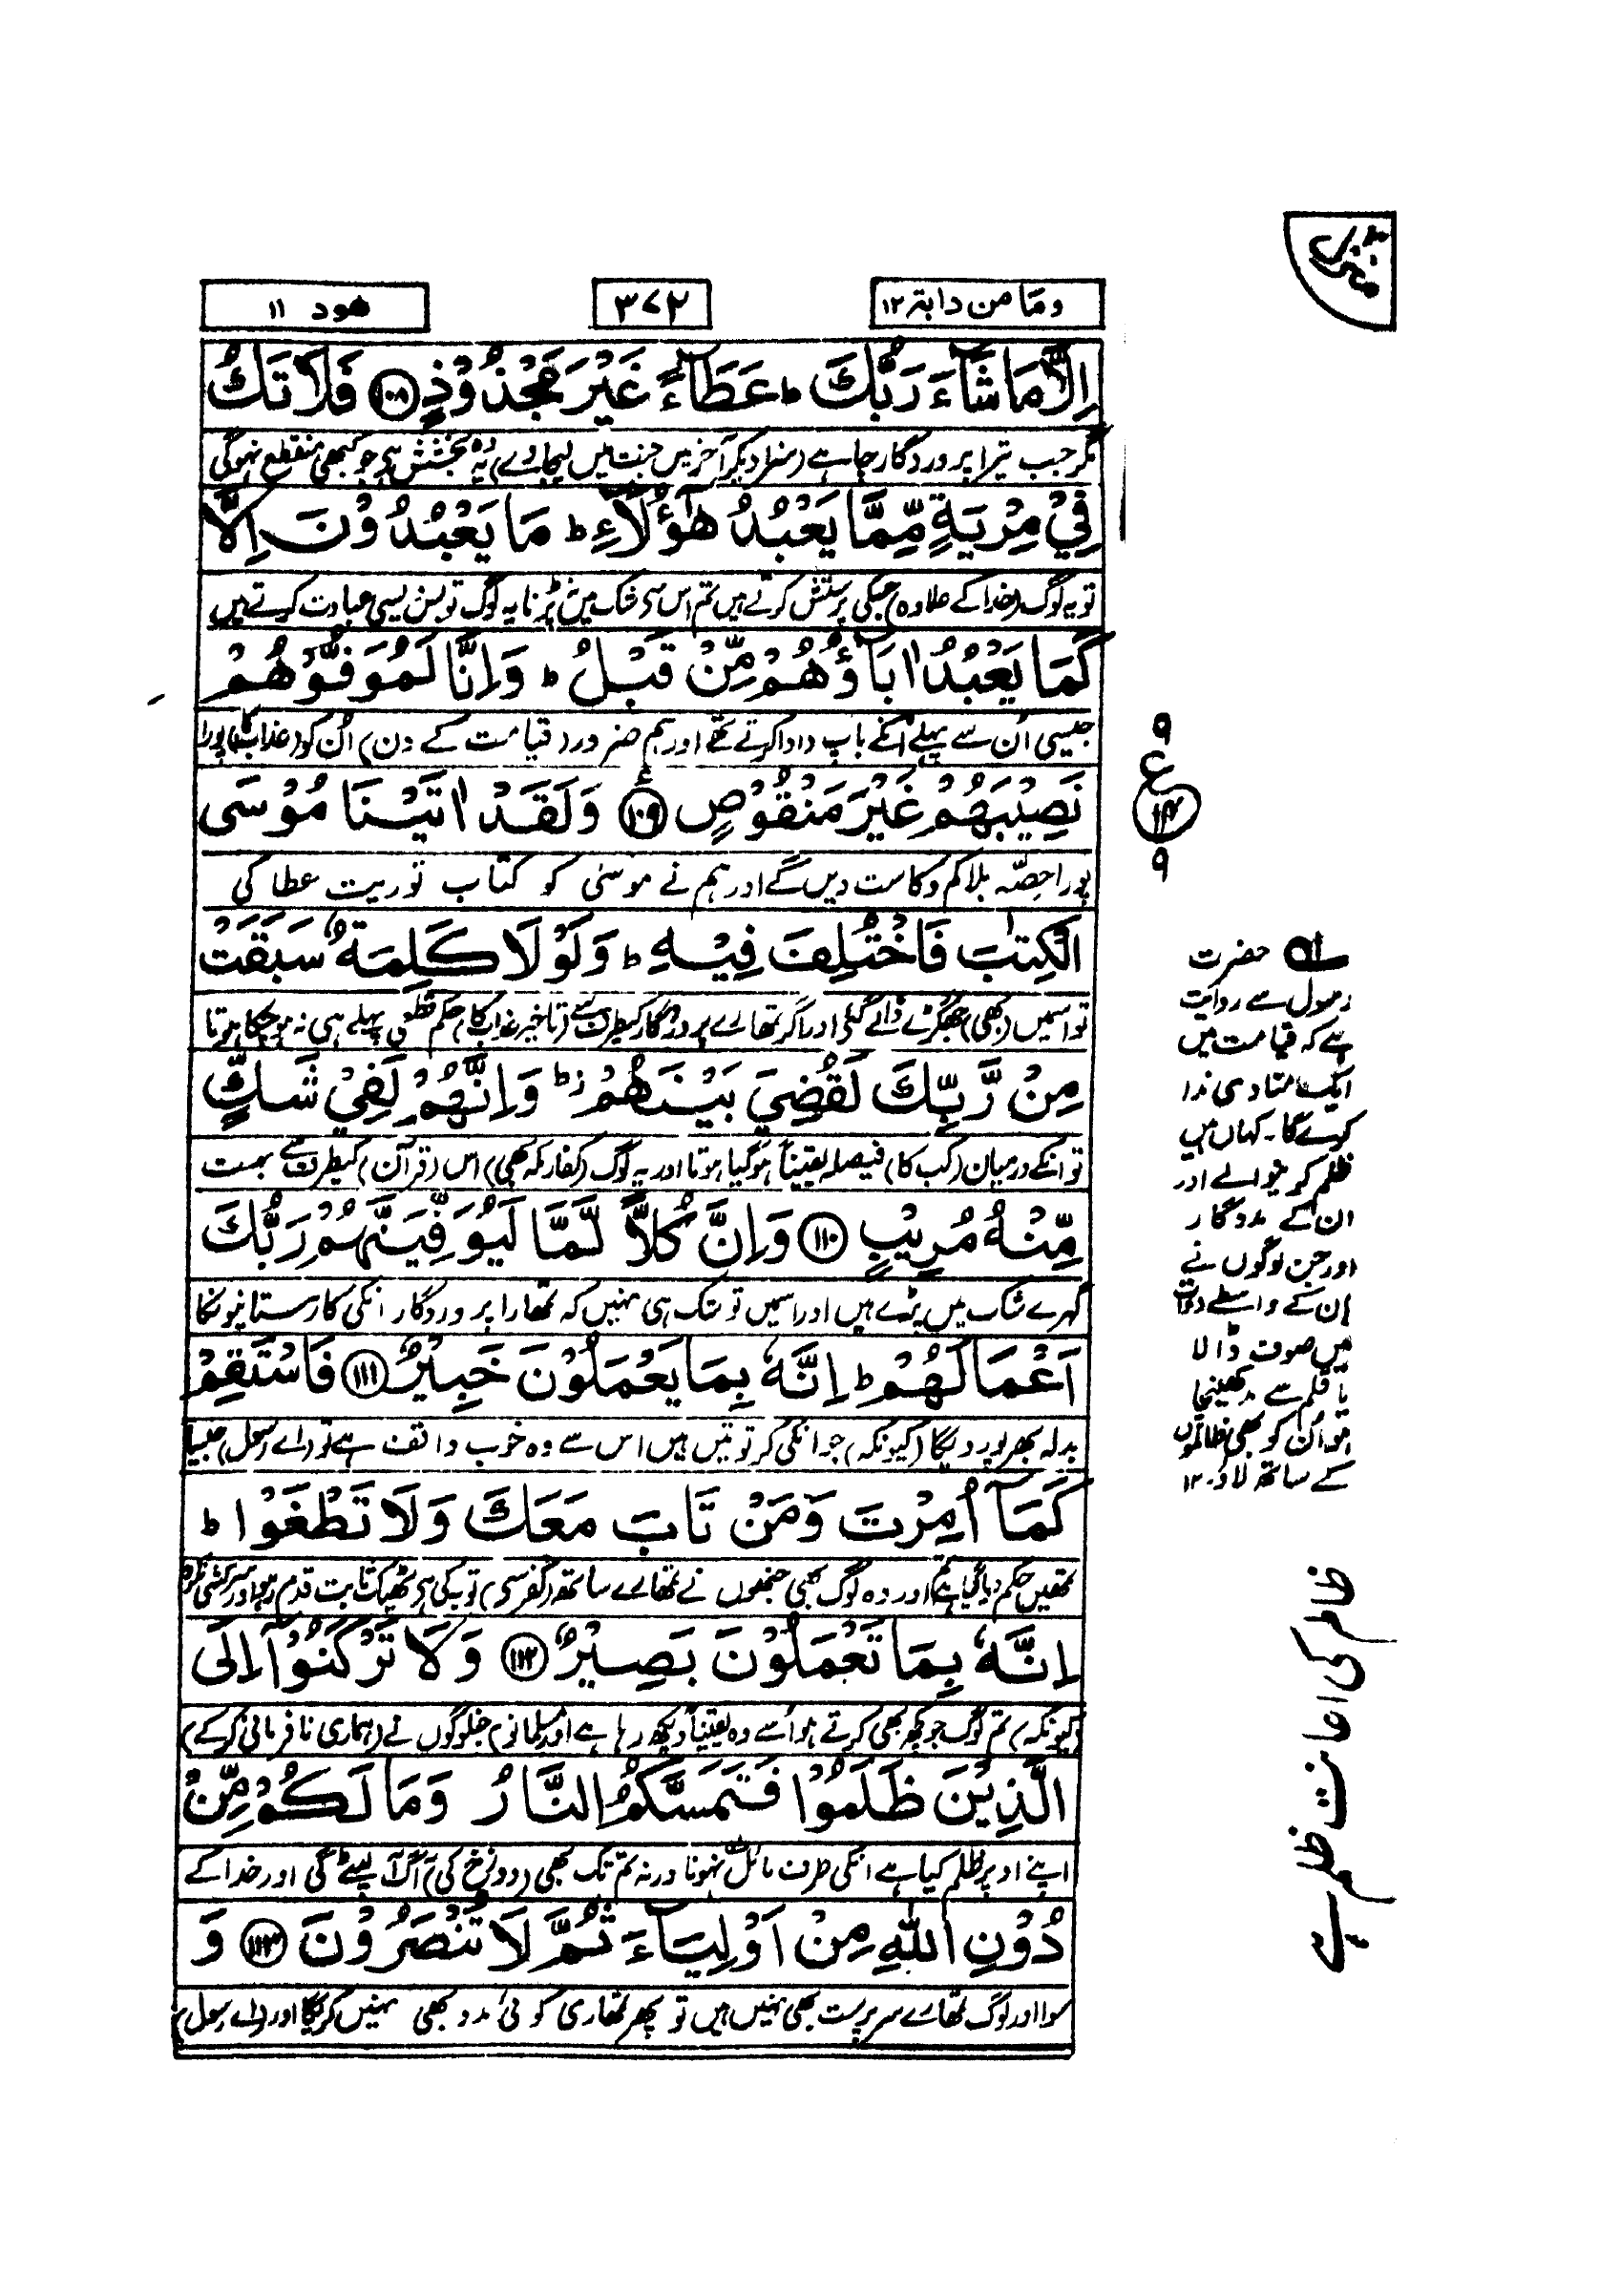 ومَا من دابّۃ ۱۲
۳۷۲
ھود ۱۱
اِلَّا مَا شَآءَ رَبُّكَ ؕ عَطَآءً غَیْرَ مَجْذُوْذٍ ۝۱۰۸ فَلَا تَكُ
مگر جب تیرا پروردگار چاہے (سزا دیکر آخر میں جنت میں لیجاوے) یہ وہ بخشش ہی جو کبھی منقطع نہوگی
فِیْ مِرْیَةٍ مِّمَّا یَعْبُدُ هٰۤؤُلَآءِ ؕ مَا یَعْبُدُوْنَ اِلَّا
تو یہ لوگ (خدا کے علاوہ) جسکی پرستش کرتے ہیں تم اس سی شک میں نہ پڑنا یہ لوگ تو بس ویسی عبادت کرتے ہیں
كَمَا یَعْبُدُ اٰبَآؤُهُمْ مِّنْ قَبْلُ ؕ وَ اِنَّا لَمُوَفُّوْهُمْ
جیسی اُن سے پہلے انکے باپ دادا کرتے تھے اور ہم ضرور (قیامت کے دن) اُن کو (عذاب کا) پورا
نَصِیْبَهُمْ غَیْرَ مَنْقُوْصٍ ۝۱۰۹ وَ لَقَدْ اٰتَیْنَا مُوْسَی
پورا حصّہ بلا کم و کاست دیں گے اور ہم نے موسٰی کو کتاب توریت عطا کی
الْكِتٰبَ فَاخْتُلِفَ فِیْهِ ؕ وَ لَوْ لَا كَلِمَةٌ سَبَقَتْ
تو اسمیں (بھی) جھگڑے ڈالے گئے اور اگر تمھارے پروردگار کیطرف سے (تاخیر عذاب کا) حکم قطعی پہلے ہی نہ ہو چکا ہوتا
مِنْ رَّبِّكَ لَقُضِیَ بَیْنَهُمْ ؕ وَ اِنَّهُمْ لَفِیْ شَكٍّ
تو انکے درمیان (کب کا) فیصلہ یقیناً ہوگیا ہوتا اور یہ لوگ (کفار مکہ بھی) اس (قرآن) کیطرف سے بہت
مِّنْهُ مُرِیْبٍ ۝۱۱۰ وَ اِنَّ كُلًّا لَّمَّا لَیُوَفِّیَنَّهُمْ رَبُّكَ
گہرے شک میں پڑے ہیں اور اسمیں تو شک ہی نہیں کہ تمھارا پروردگار انکی کارستانیونکا
اَعْمَالَهُمْ ؕ اِنَّهٗ بِمَا یَعْمَلُوْنَ خَبِیْرٌ ۝۱۱۱ فَاسْتَقِمْ
بدلہ بھرپور دیگا (کیونکہ) جو انکی کرتوتیں ہیں اس سے وہ خوب واقف ہے تو (اے رسول) جیسا
كَمَاۤ اُمِرْتَ وَ مَنْ تَابَ مَعَكَ وَ لَا تَطْغَوْا ؕ
تمھیں حکم دیا گیا ہے تم اور وہ لوگ بھی جنھوں نے تمھارے ساتھ (کفر سی) توبہ کی ہی ٹھیک ثابت قدم رہو اور سرکشی نکرو
اِنَّهٗ بِمَا تَعْمَلُوْنَ بَصِیْرٌ ۝۱۱۲ وَ لَا تَرْكَنُوْۤا اِلَی
(کیونکہ) تم لوگ جو کچھ بھی کرتے ہو اُسے وہ یقیناً دیکھ رہا ہے اور (مسلمانو) جن لوگوں نے (ہماری نافرمانی کرکے)
الَّذِیْنَ ظَلَمُوْا فَتَمَسَّكُمُ النَّارُ وَ مَا لَكُمْ مِّنْ
اپنے اوپر ظلم کیا ہے انکی طرف مائل نہونا ورنہ تم تک بھی (دوزخ کی) آگ آ لپٹے گی اور خدا کے
دُوْنِ اللّٰهِ مِنْ اَوْلِیَآءَ ثُمَّ لَا تُنْصَرُوْنَ ۝۱۱۳ وَ
سوا اور لوگ تمھارے سرپرست بھی نہیں ہیں تو پھر تمھاری کوئی مدد بھی نہیں کریگا اور (اے رسول)
منزل
۹
ع
۹
لہ حضرت
رسول سے روایت
ہے کہ قیامت میں
ایک منادی ندا
کرے گا۔ کہاں ہیں
ظلم کرنیوالے اور
ان کے مددگار
اور جن لوگوں نے
اِن کے واسطے دوات
میں صوف ڈالا
یا قلم سے مد کھینچا
ہو اُن کو بھی ظالموں
کے ساتھ لاؤ۔ ۱۲
ظالم کی اعانت ظلم ہے